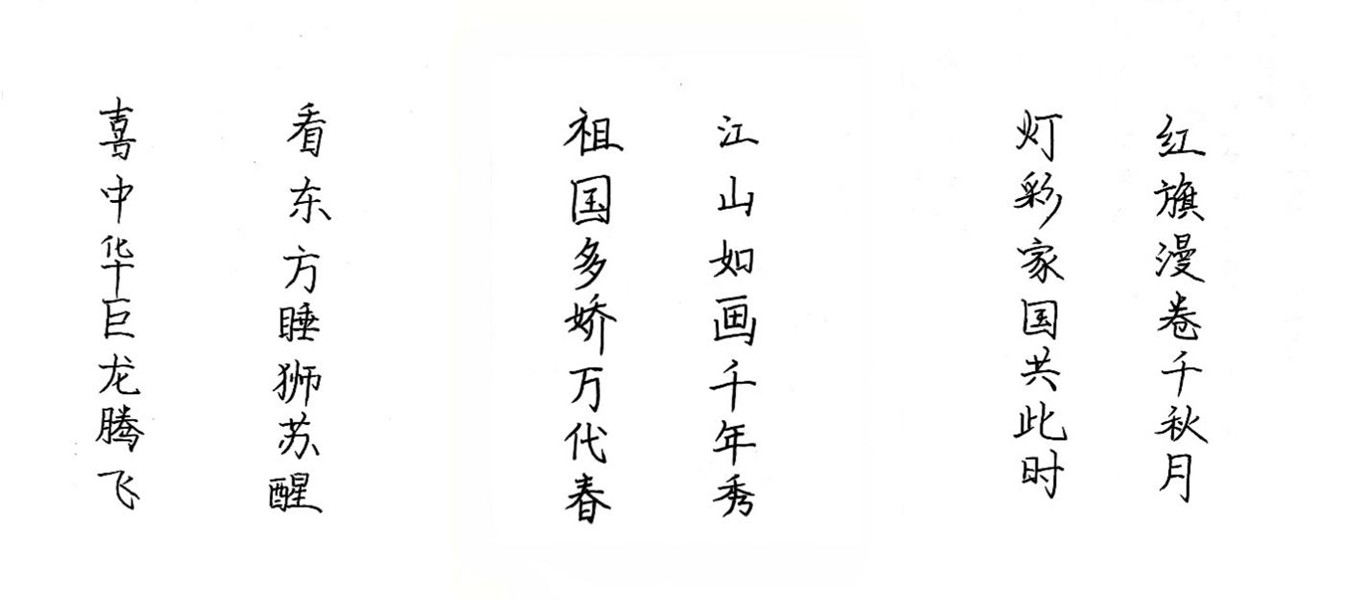 红旗漫卷千秋月
灯彩家国共此时
江山如画千年秀
祖国多娇万代春
看东方睡狮苏醒
喜中华巨龙腾飞